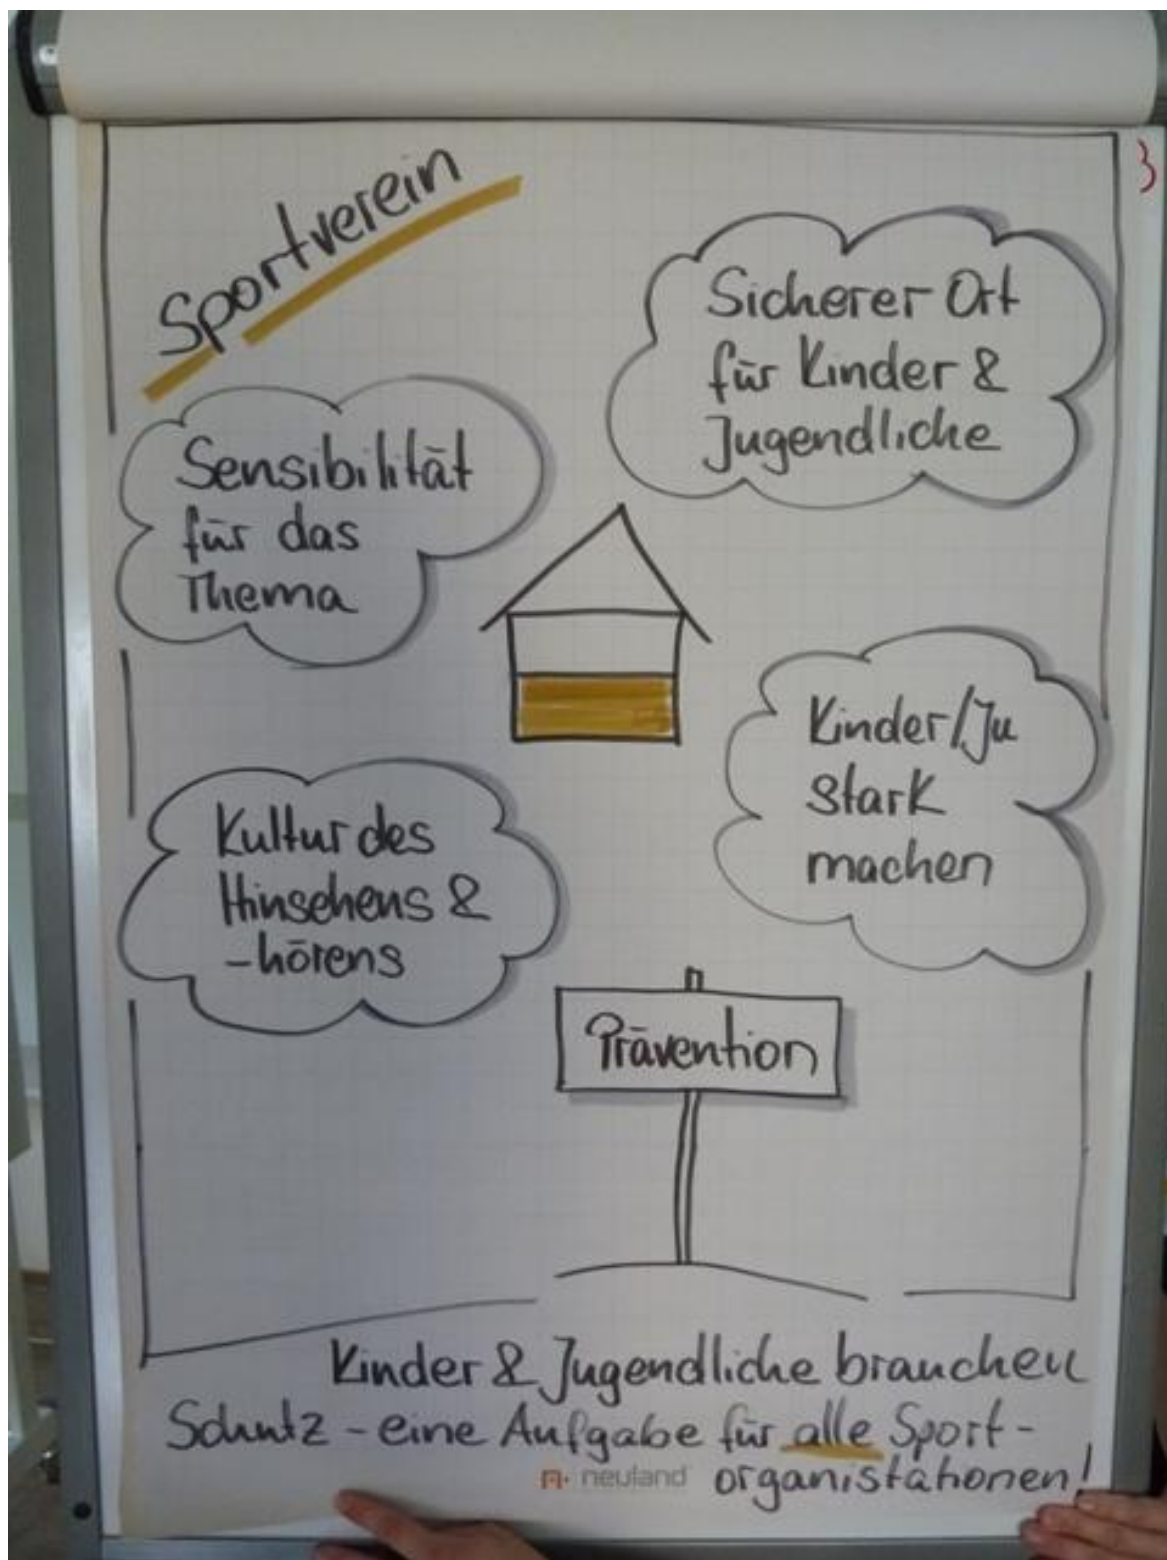 3
Sportverein
Sicherer Ort
für Kinder &
Jugendliche
Sensibilität
für das
Thema
Kinder/Ju
stark
machen
Kultur des
Hinsehens &
-hörens
Prävention
Kinder & Jugendliche brauchen
Schutz - eine Aufgabe für alle Sport-
organistationen!
neuland